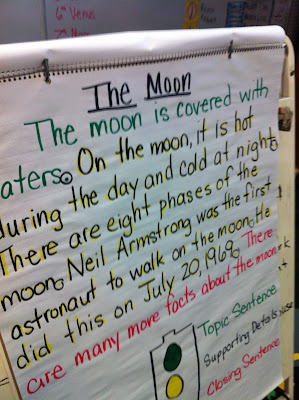 6th Venus
The Moon
The moon is covered with
aters. On the moon, it is hot
during the day and cold at night.
There are eight phases of the
moon. Neil Armstrong was the first
astronaut to walk on the moon. He
did this on July 20, 1969. There
are many more facts about the moon.
Topic Sentence
Supporting Details
Closing Sentence